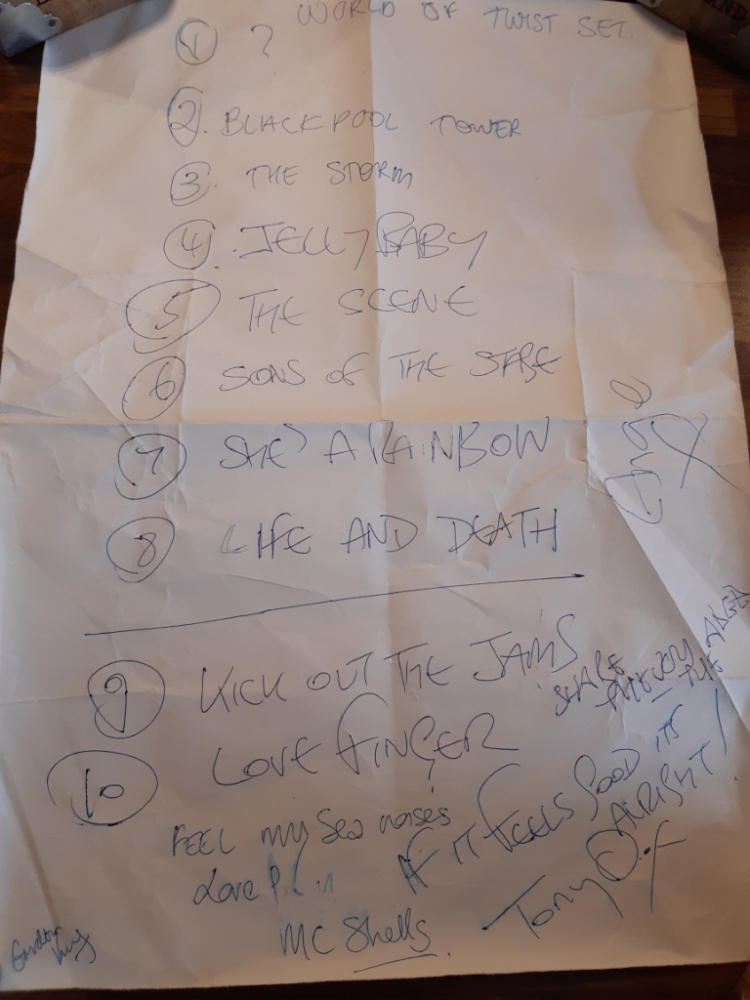 WORLD OF TWIST SET.
① ?
②. BLACKPOOL TOWER
③. THE STORM
④. JELLYBABY
⑤ THE SCENE
⑥ SONS OF THE STAGE
⑦ SHE'S A RAINBOW
⑧ LIFE AND DEATH
⑨ KICK OUT THE JAMS
⑩ LOVE FINGER
SHARE
FEEL MY Sea noises
Love
IF IT FEELS GOOD ITS
ALRIGHT!
Tony O. X
MC Shells
Gordon King